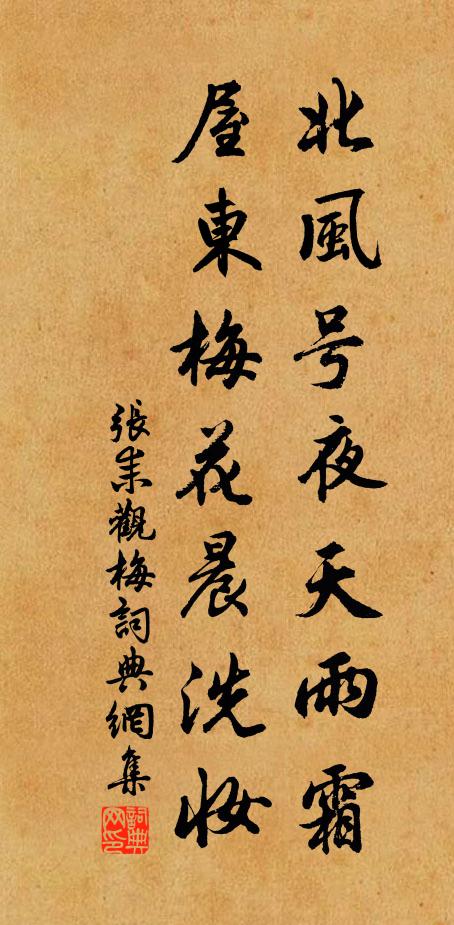 北風号夜天雨霜
屋東梅花晨洗妝
張耒觀梅詞典網集
詞典網印